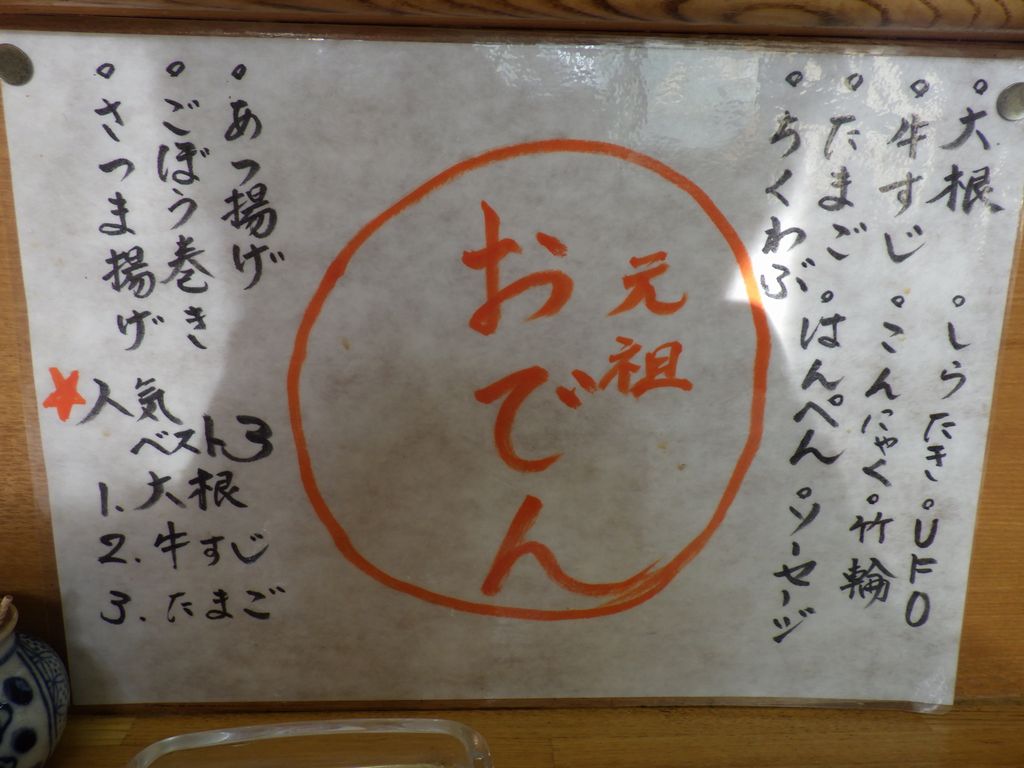 。大根 。しらたき。UFO
。牛すじ 。こんにゃく。竹輪
。たまご 。はんぺん。ソーセージ
。ちくわぶ
元祖
おでん
。あつ揚げ
。ごぼう巻き
。さつま揚げ
★人気
ベスト3
1. 大根
2. 牛すじ
3. たまご